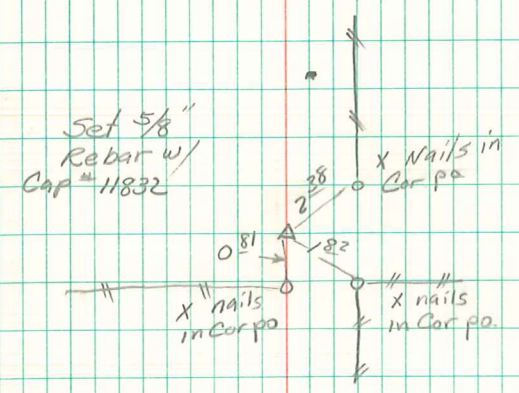 Set 5/8"
Rebar w/
Cap # 11832
X Nails in
Cor po
2 38
0 81
1 82
X nails
in Cor po
X nails
in Cor po.